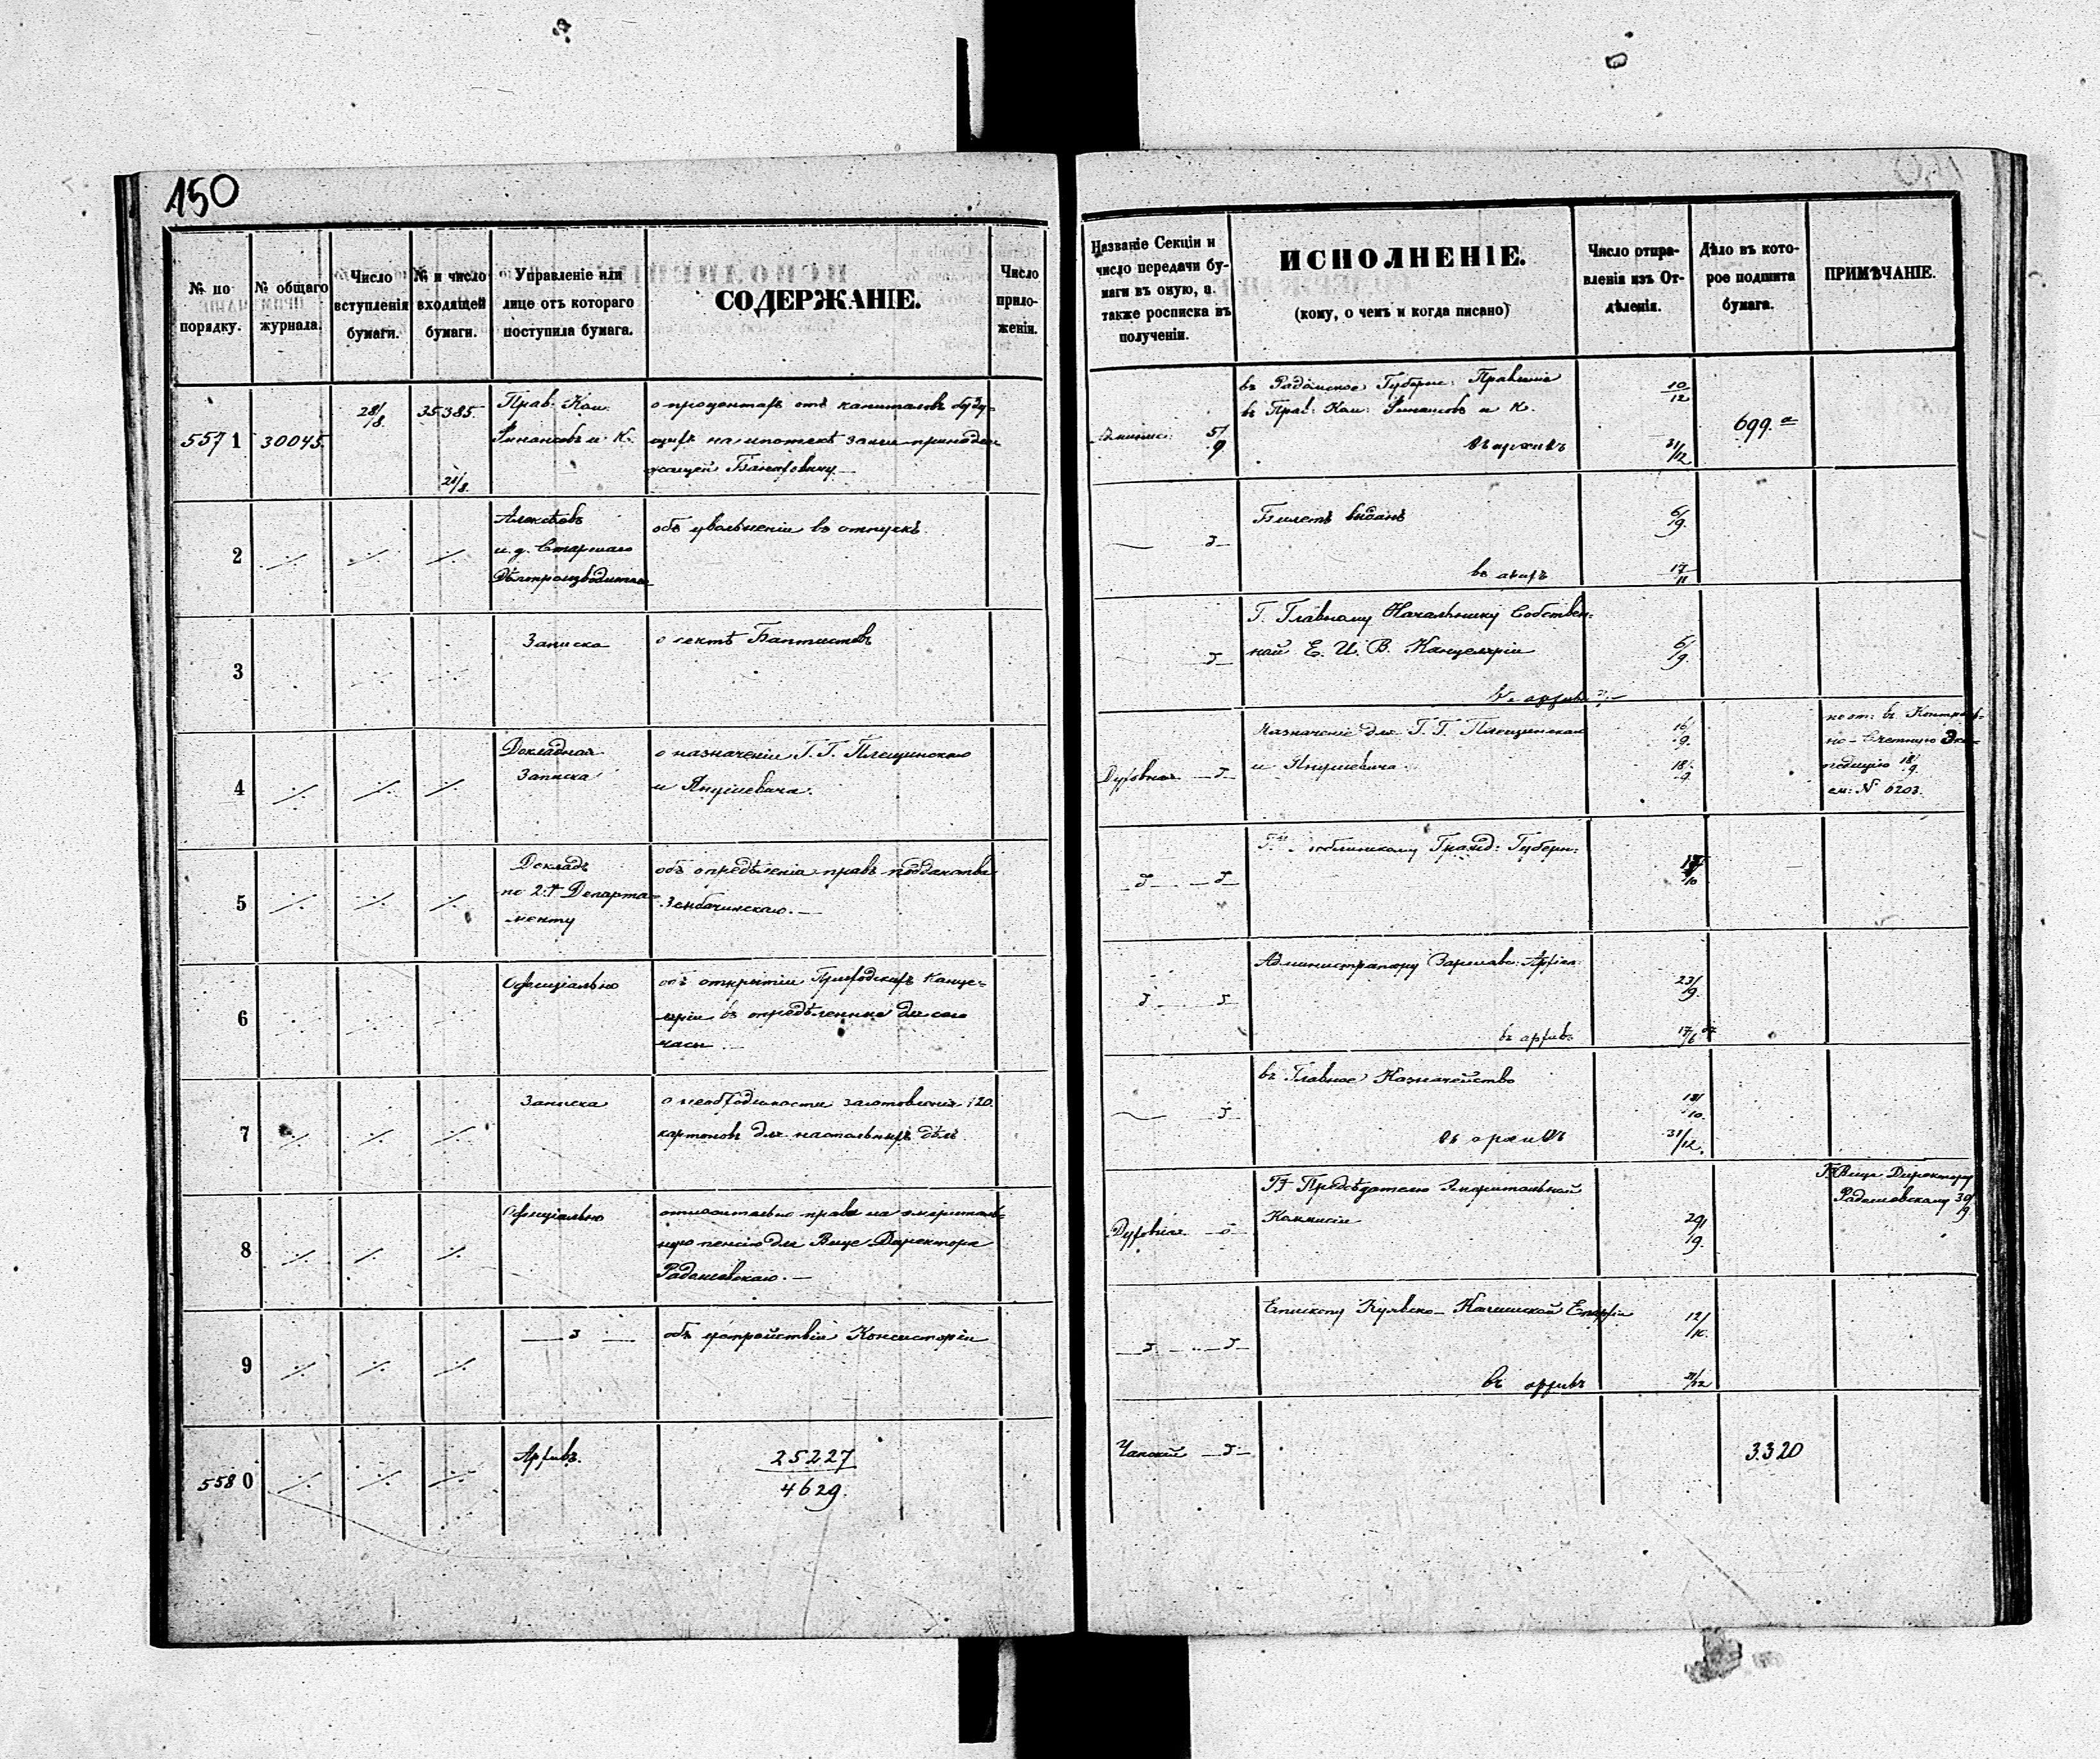 150
№ по
порядку.
№ общаго
журнала.
Число
вступленія
бумаги.
№ и число
входящей
бумаги.
Управленіе или
лице отъ котораго
поступила бумага.
СОДЕРЖАНІЕ.
Число
прило-
женія.
5571
30045.
28/8
35385
21/8.
Прав. Ком.
Финансовъ и К.
о процентахъ отъ капиталовъ буду-
щихъ на ипотекѣ
2
и. д. Старшаго
Дѣлопроизводителя
объ увольненіи въ отпускъ.
3
Записка
о сектѣ Баптистовъ
4
Докладная
Записка
о назначеніи Г. Г. Плещинскаго
и Янушевича.
5
Докладъ
по 2.му Департа-
менту
объ опредѣленіи правъ подданства
6
Офиціально
объ открытіи Приходскихъ Канце-
лярій въ опредѣленные для сего
часы.
7
Записка
о необходимости заготовленія 120
картоновъ для настольныхъ дѣлъ
8
Офиціально
относительно права на эмериталь-
ную пенсію для Вице Директора
Радошевскаго.
9
объ устройствѣ Консисторіи
5580
Архивъ.
25227
4629.
Названіе Секціи и
число передачи бу-
маги въ оную, а
также росписка въ
полученіи.
ИСПОЛНЕНІЕ.
(кому, о чемъ и когда писано)
Число отпра-
вленія изъ От-
дѣленія.
Дѣло въ кото-
рое подшита
бумага.
ПРИМѢЧАНІЕ.
5/9
въ Радомское Губерн: Правленіе
въ Прав: Ком: Финансовъ и К.
въ архивъ
10/12
31/12
699. а
Билетъ выданъ
6/9.
въ архивъ
17/11
Г. Главному Начальнику Собствен-
ной Е. И. В. Канцеляріи
6/9.
въ архивъ
Духовная
Назначеніе для Г. Г. Плещинскаго
и Янушевича
16/9.
18/9.
въ Контроль-
но-Счетную Экс-
педицію 18/9.
см: № 6203.
Люблинскому Гражд: Губерн:
Администратору Варшавс: Архіеп:
23/9.
въ архивъ
17/6 67
въ Главное Казначейство
18/10.
въ архивъ
31/12.
Духовная
Г. Предсѣдателю Эмеритальной
Коммисіи
29/9.
Г. Вице Директору
Радошевскому 30/9
Епископу Куявско-Калишской Епархіи
12/10.
въ архивъ
31/12
3320